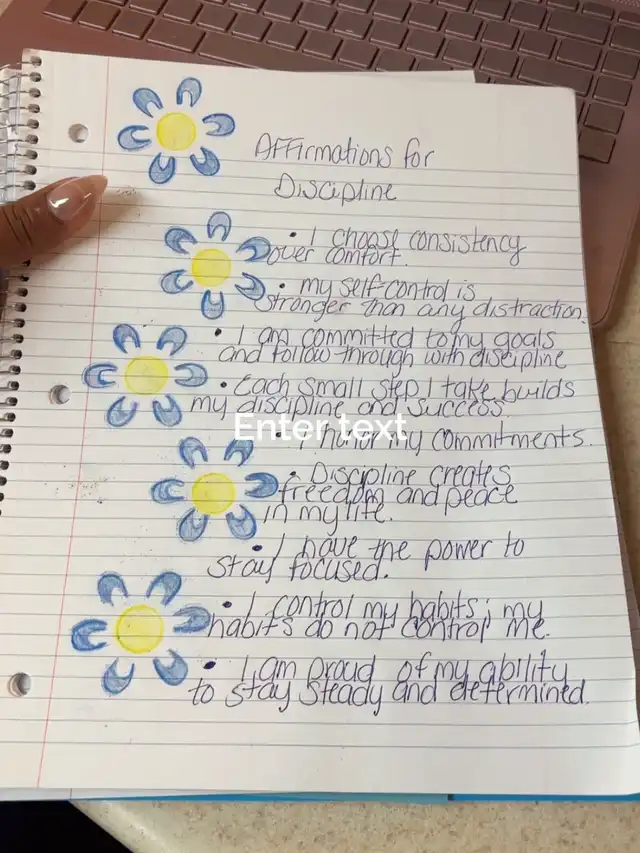 Affirmations for
Discipline
• I choose consistency
over comfort.
• my self-control is
stronger than any distraction.
• I am committed to my goals
and follow through with discipline
• Each small step I take builds
my discipline and success.
Enter text
• I honor my commitments.
• Discipline creates
freedom and peace
in my life.
• I have the power to
stay focused.
• I control my habits; my
habits do not control me.
• I am proud of my ability
to stay steady and determined.